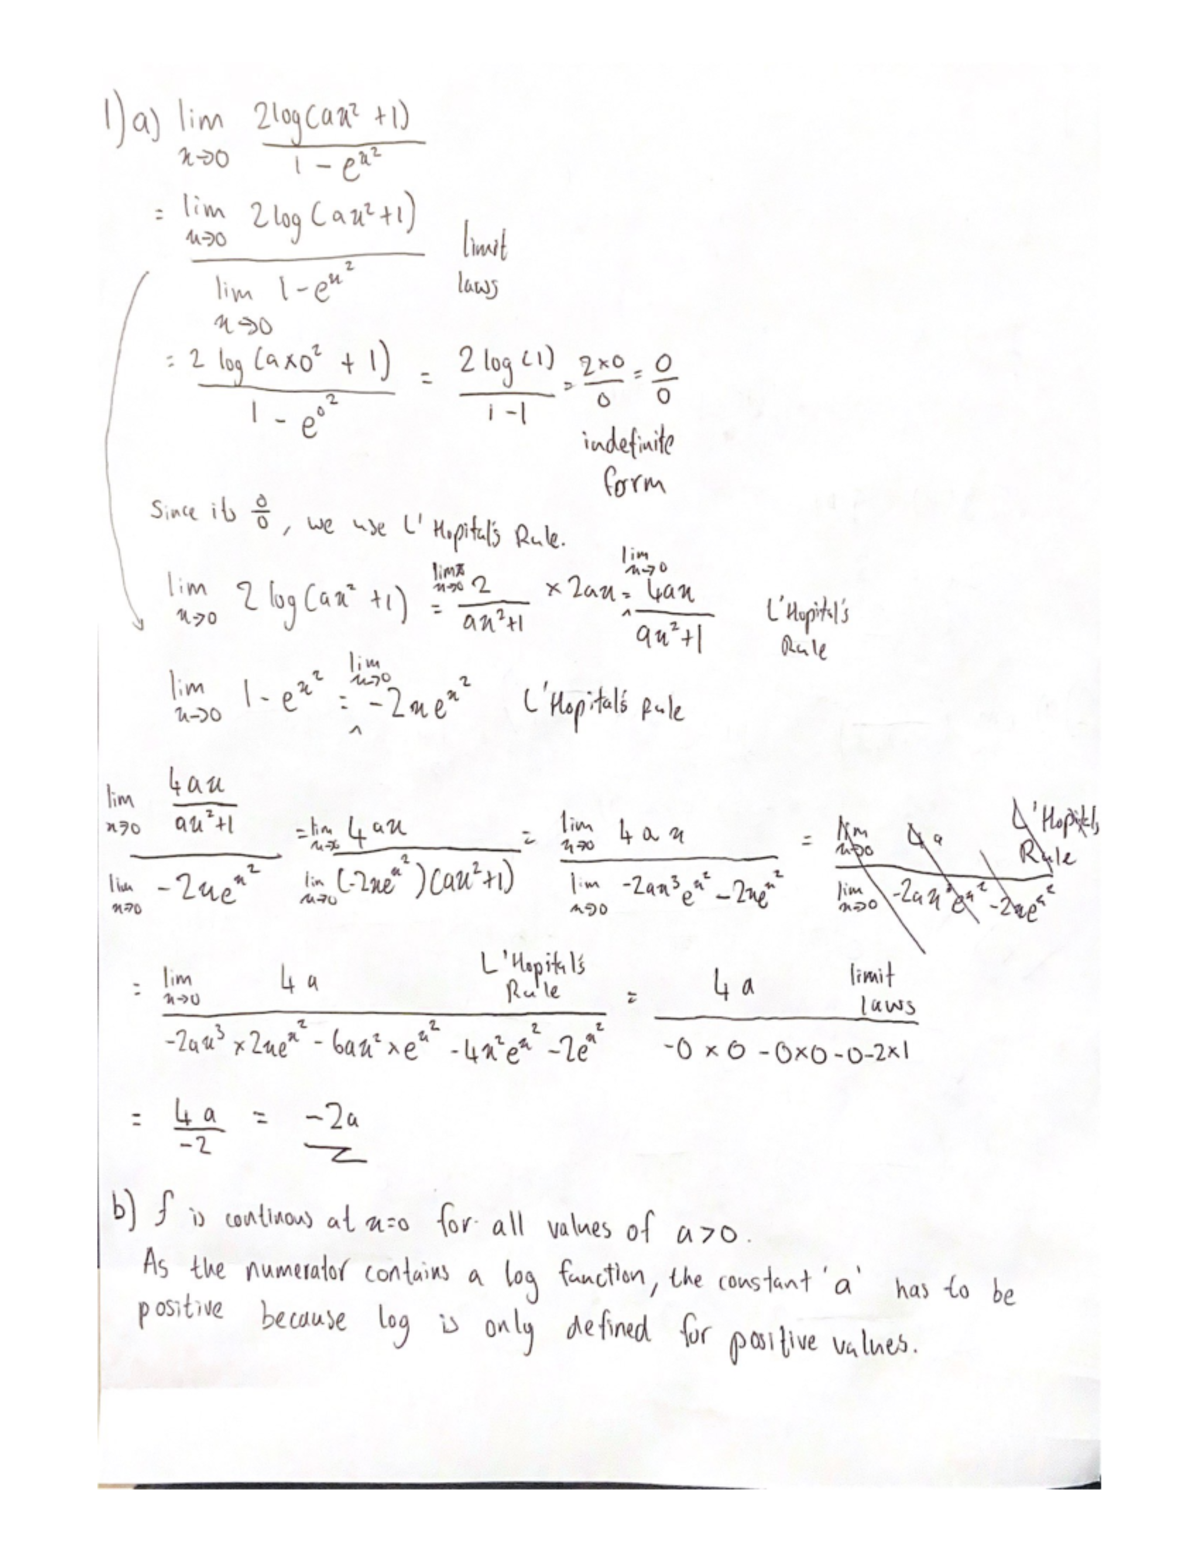 1) a) lim x→0 2log(ax² + 1) / 1 - e^x²
= lim x→0 2log(ax²+1) / lim x→0 1-e^x² limit laws
= 2 log(a×0² + 1) / 1 - e^0² = 2 log(1) / 1-1 = 2×0 / 0 = 0/0
indefinite form
Since its 0/0, we use L'Hopital's Rule.
lim x→0 2 log(ax² +1) = lim x→0 2 / ax²+1 × 2ax = lim x→0 4ax / ax²+1 L'Hopital's Rule
lim x→0 1-e^x² = lim x→0 -2xe^x² L'Hopital's Rule
lim x→0 4ax / ax²+1 / lim x→0 -2xe^x² = lim x→0 4ax / lim x→0 (-2xe^x²)(ax²+1) = lim x→0 4ax / lim x→0 -2ax³e^x² - 2xe^x² = lim x→0 4a / lim x→0 -2ax³e^x² -2xe^x² L'Hopitals Rule
= lim x→0 4a / -2ax³ ×2xe^x² - 6ax²×e^x² - 4x²e^x² -2e^x² L'Hopital's Rule = 4a / -0 × 0 - 0×0 -0-2×1 limit laws
= 4a / -2 = -2a
b) f is continous at x=0 for all values of a>0.
As the numerator contains a log function, the constant 'a' has to be
positive because log is only defined for positive values.